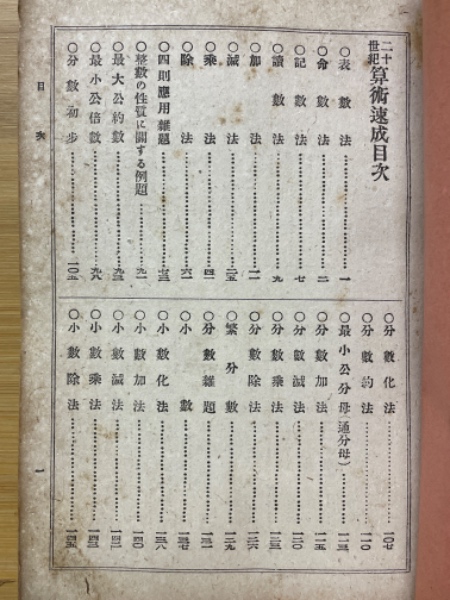 二十世紀算術速成目次
〇表數法……一
〇命數法……二
〇記數法……七
〇讀數法……九
〇加法……一一
〇減法……二五
〇乘法……四一
〇除法……六一
〇四則應用雜題……七三
〇整數の性質に關する例題……九一
〇最大公約數……九三
〇最小公倍數……九八
〇分數初步……一〇五
〇分數化法……一〇七
〇分數約法……一一〇
〇最小公分母(通分母)……一一三
〇分數加法……一一五
〇分數減法……一二〇
〇分數乘法……一二三
〇分數除法……一二六
〇繁分數……一二九
〇分數雜題……一三一
〇小數……一三七
〇小數化法……一三八
〇小數加法……一四〇
〇小數減法……一四二
〇小數乘法……一四三
〇小數除法……一四五
目次
一